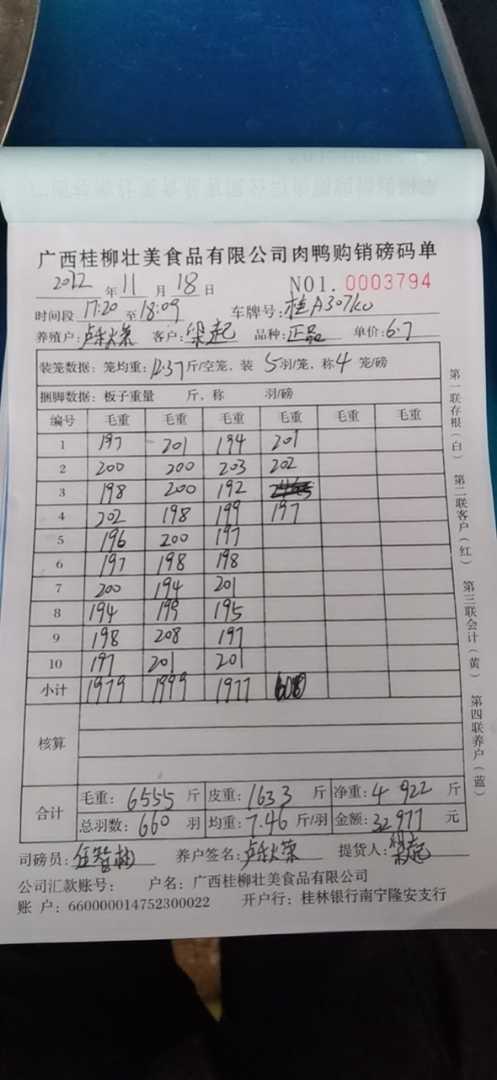 广西桂柳壮美食品有限公司肉鸭购销磅码单
2012 年 11 月 18 日 NO1. 0003794
时间段 17:20 至 18:09 车牌号: 桂A307k0
养殖户: 客户: 梁起 品种: 正品 单价: 6.7
装笼数据: 笼均重: 12.37 斤/空笼, 装 5 羽/笼, 称 4 笼/磅
捆脚数据: 板子重量 斤, 称 羽/磅
编号 毛重 毛重 毛重 毛重 毛重 毛重
1 197 201 194 201
2 200 200 203 202
3 198 200 192
4 202 198 199 197
5 196 200 197
6 197 198 198
7 200 194 201
8 194 199 195
9 198 208 197
10 197 201 201
小计 1979 1999 1977
核算
合计 毛重: 6555 斤 皮重: 1633 斤 净重: 4922 斤
总羽数: 660 羽 均重: 7.46 斤/羽 金额: 32977 元
司磅员: 养户签名: 提货人: 梁起
公司汇款账号: 户名: 广西桂柳壮美食品有限公司
账 户: 660000014752300022 开户行: 桂林银行南宁隆安支行
第一联存根(白) 第二联客户(红) 第三联会计(黄) 第四联养户(蓝)